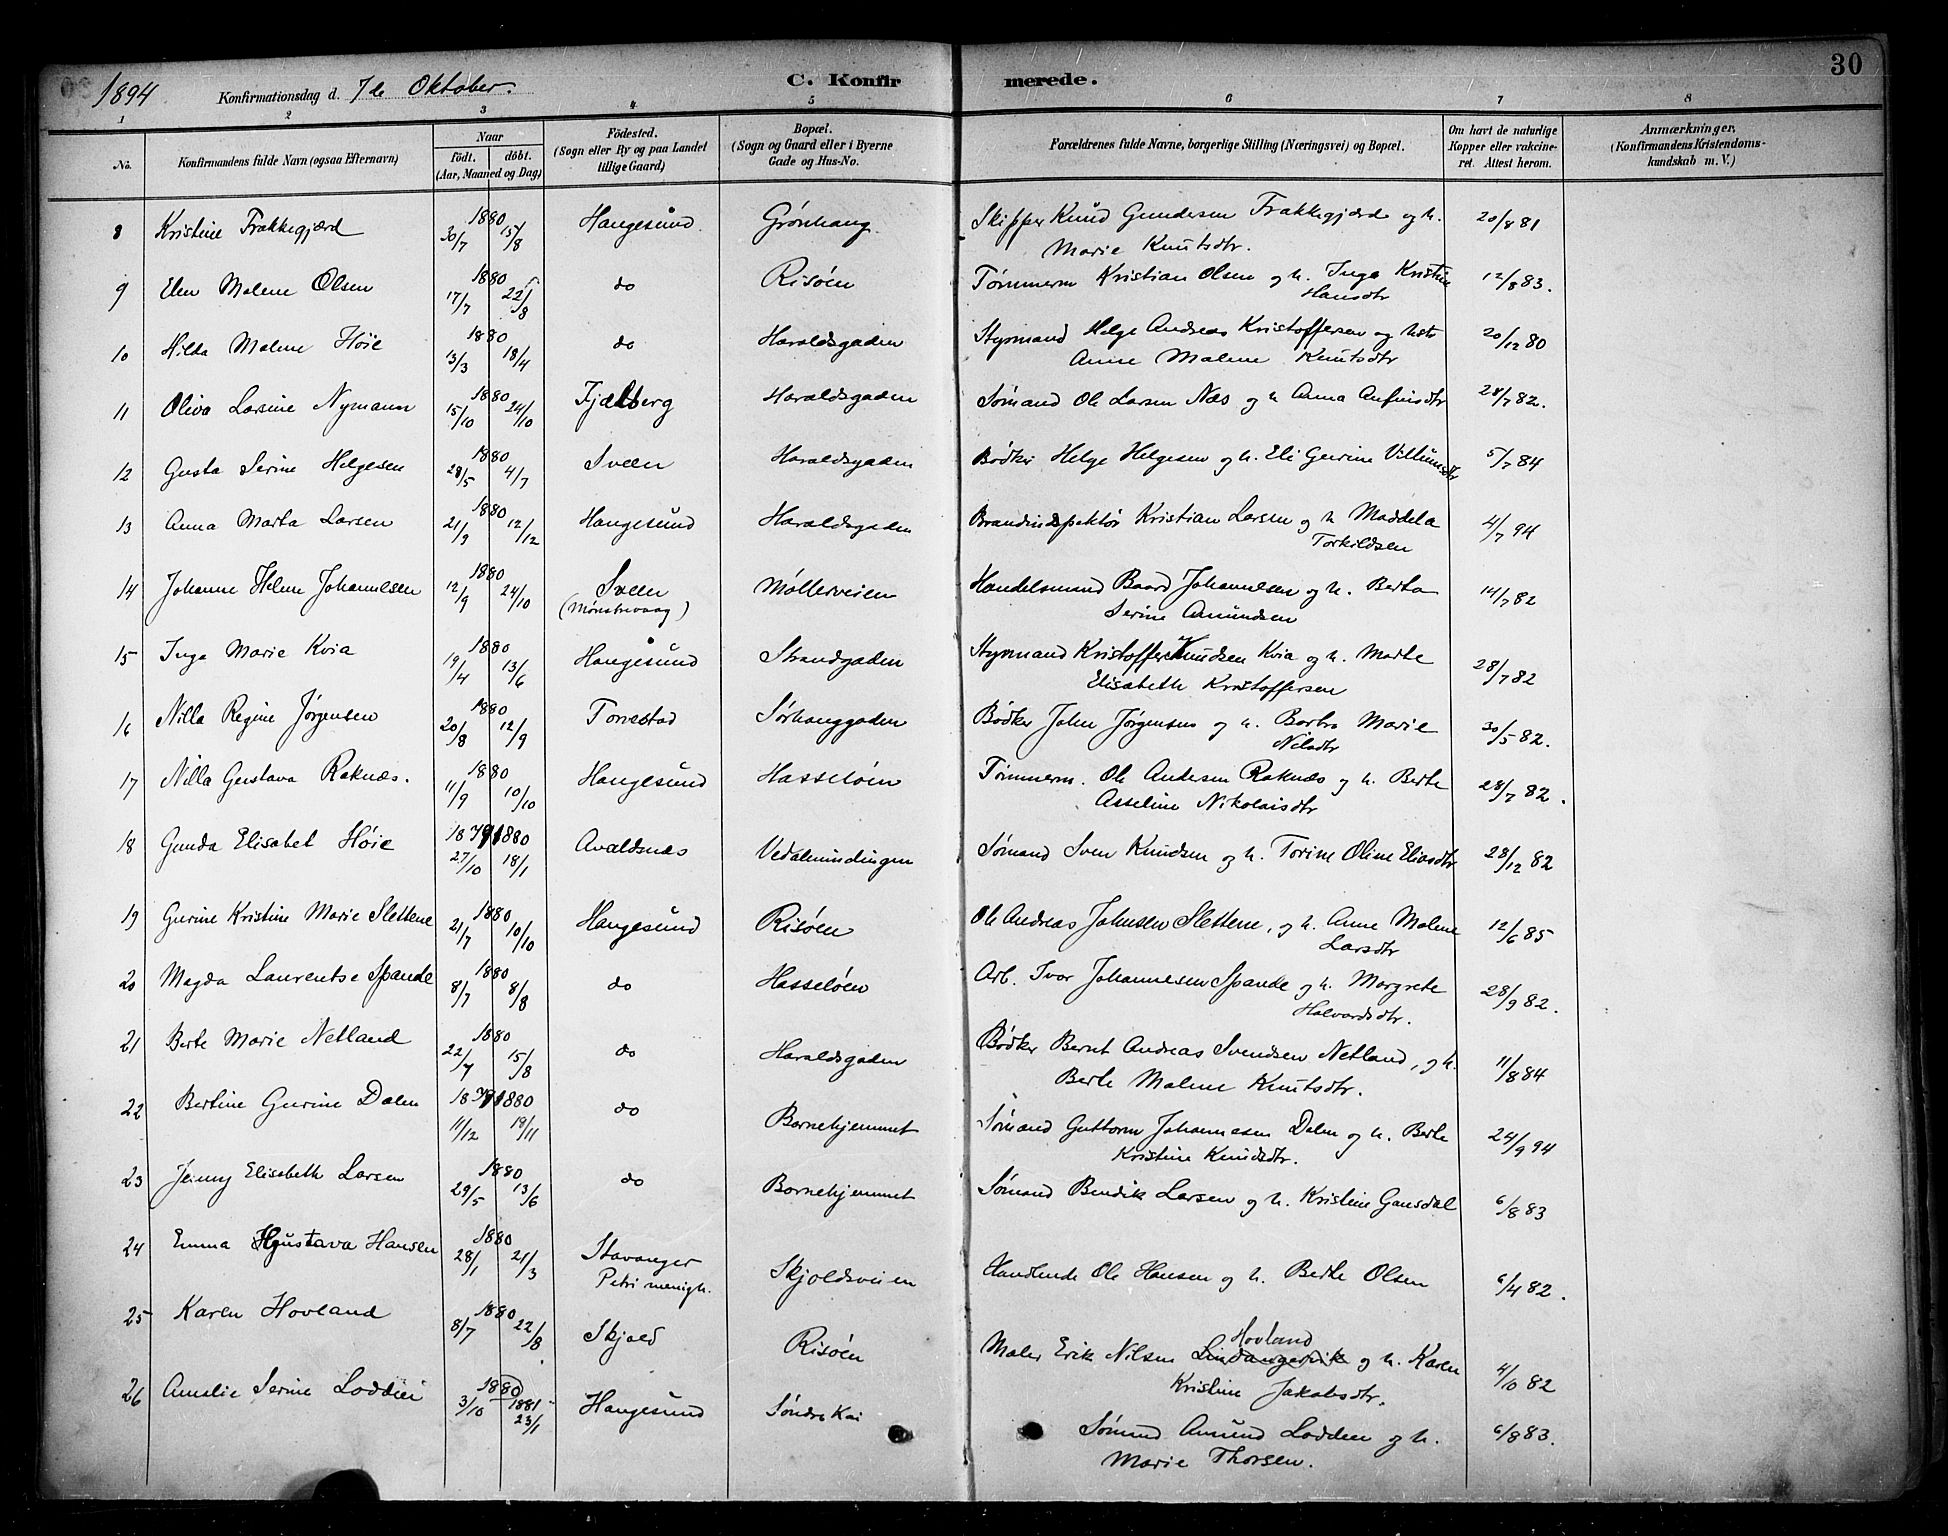 30
1894 Konfirmationsdag d. 7de Oktober. C. Konfirmerede.
1 2 3 4 5 6 7 8
No. Konfirmandens fulde Navn (ogsaa Efternavn) Naar födt. döbt. (Aar, Maaned og Dag) Födested. (Sogn eller By og paa Landet tillige Gaard) Bopæl. (Sogn og Gaard eller i Byerne Gade og Hus-No. Forældrenes fulde Navne, borgerlige Stilling (Næringsvei) og Bopæl. Om havt de naturlige Kopper eller vakcineret. Attest herom. Anmærkninger, (Konfirmandens Kristendomskundskab m. V.)
8 Kristine Frakkegjærd 1880 30/7 15/8 Haugesund Grønhaug Skipper Knud Gundersen Frakkegjærd og h. 20/8 81
Marie Knutsdtr.
9 Elen Malene Olsen 1880 17/7 22/8 do Risøen Tømmerm Kristian Olsen og h. Inga Kristine 12/8 83.
Hansdtr
10 Hilda Malene Høie 1880 13/3 18/4 do Haraldsgaden Styrmand Helge Andreas Kristoffersen og hstr 20/12 80
Anne Malene Knutsdtr
11 Oliva Larsine Nymann 1880 15/10 24/10 Fjælberg Haraldsgaden Sømand Ole Larsen Næs og h Anna Anfinsdtr 28/7 82.
12 Gusta Serine Helgesen 1880 28/5 4/7 Sveen Haraldsgaden Bødker Helge Helgesen og h. Eli Gurine Villumsdtr 5/7 84
13 Anna Marta Larsen 1880 21/9 12/12 Haugesund Haraldsgaden Brandindspektør Kristian Larsen og h Maddela 4/7 94
Torkildsen
14 Johanne Helene Johannesen 1880 12/9 24/10 Sveen Møllerveien Handelsmand Baard Johannesen og h. Berta 14/7 82
(Mønstrevaag) Serine Amundsen
15 Inga Marie Kvia 1880 19/4 13/6 Haugesund Strandgaden Styrmand Kristoffer Knudsen Kvia og h. Marte 28/7 82
Elisabeth Kristoffersen
16 Nilla Regine Jørgensen 1880 20/8 12/9 Torvestad Sørhauggaden Bødker John Jørgensen og h. Barbra Marie 30/5 82.
Nilsdtr
17 Nilla Gustava Raknæs. 1880 11/9 10/10 Haugesund Hasseløen Tømmerm. Ole Andersen Raknæs og h. Berte 28/7 82.
Asseline Nikolaisdtr
18 Gunda Elisabet Høie 1879 1880 27/10 18/1 Avaldsnæs Vedalmindingen Sømand Sven Knudsen og h. Torine Oline Eliasdtr 28/12 82
19 Gurine Kristine Marie Slettene 1880 21/7 10/10 Haugesund Risøen Ole Andreas Johnsen Slettene, og h. Anne Malene 12/6 85
Larsdtr
20 Magda Laurentse Spande 1880 8/7 8/8 do Hasseløen Arb. Ivar Johannesen Spande og h. Margrete 28/9 82.
Halvardsdtr.
21 Berte Marie Netland 1880 22/7 15/8 do Haraldsgaden Bødker Bernt Andreas Svendsen Netland, og h. 11/8 84
Berte Malene Knutsdtr.
22 Bertine Gurine Dalen 1879 1880 11/12 19/11 do Børnehjemmet Sømand Guttorm Johannesen Dalen og h. Berte 24/9 94
Kristine Knudsdtr.
23 Jenny Elisabeth Larsen 1880 29/5 13/6 do Børnehjemmet Sømand Bendik Larsen og h. Kristine Gausdal 6/8 83
24 Emma Gustava Hansen 1880 28/1 21/3 Stavanger Skjoldsveien Handlende Ole Hansen og h. Berte Olsen 6/4 82.
Petri menigh.
25 Karen Hovland 1880 8/7 22/8 Skjold Risøen Maler Erik Nilsen Hovland og h. Karen 4/10 82
Kristine Jakobsdtr.
26 Amalie Serine Lodden 1880 3/10 1881 23/1 Haugesund Søndre Kai Sømand Amund Lodden og h. 6/8 83.
Marie Thorsen.